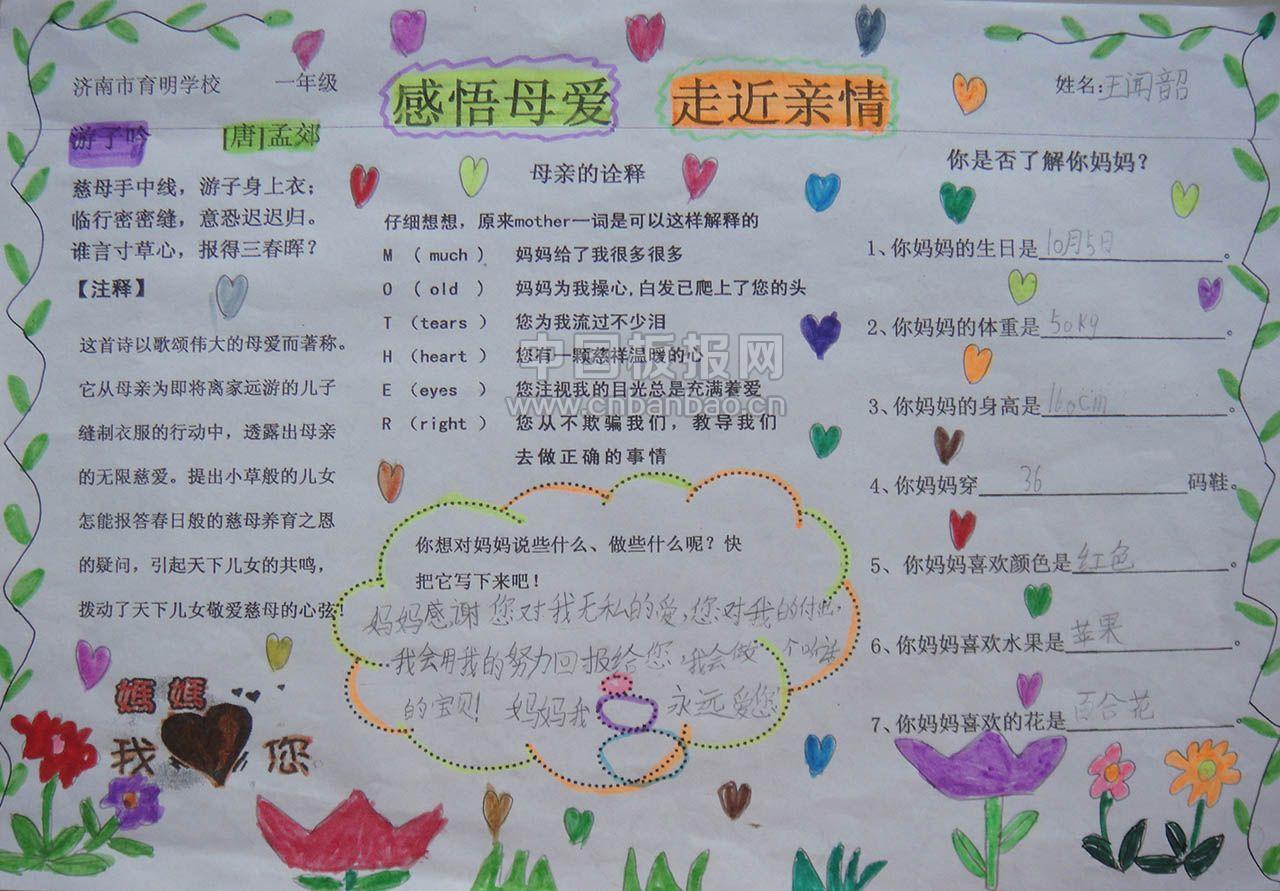 济南市育明学校 一年级
感悟母爱 走近亲情
姓名:王闻韶
游子吟 [唐]孟郊
慈母手中线，游子身上衣；
临行密密缝，意恐迟迟归。
谁言寸草心，报得三春晖？
【注释】
这首诗以歌颂伟大的母爱而著称。
它从母亲为即将离家远游的儿子
缝制衣服的行动中，透露出母亲
的无限慈爱。提出小草般的儿女
怎能报答春日般的慈母养育之恩
的疑问，引起天下儿女的共鸣，
拨动了天下儿女敬爱慈母的心弦！
媽媽
我 您
母亲的诠释
仔细想想，原来mother一词是可以这样解释的
M （much） 妈妈给了我很多很多
O （old ） 妈妈为我操心,白发已爬上了您的头
T （tears） 您为我流过不少泪
H （heart） 您有一颗慈祥温暖的心
E （eyes ） 您注视我的目光总是充满着爱
R （right） 您从不欺骗我们，教导我们
去做正确的事情
中国板报网
www.cnbanbao.cn
你想对妈妈说些什么、做些什么呢？快
把它写下来吧！
妈妈感谢您对我无私的爱,您对我的付出.
我会用我的努力回报给您,我会做一个听话
的宝贝! 妈妈我 永远爱您
你是否了解你妈妈？
1、你妈妈的生日是10月5日。
2、你妈妈的体重是50kg。
3、你妈妈的身高是160cm。
4、你妈妈穿 36 码鞋。
5、你妈妈喜欢颜色是红色。
6、你妈妈喜欢水果是苹果。
7、你妈妈喜欢的花是百合花。